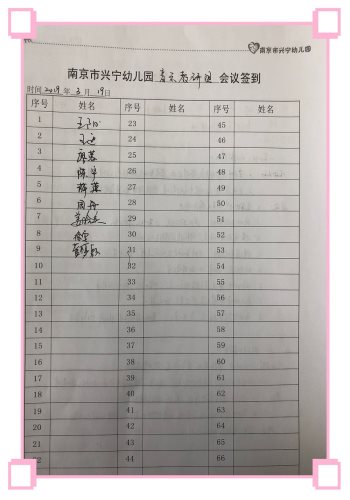 南京市兴宁幼儿园
南京市兴宁幼儿园 音乐教研组 会议签到
时间 2019 年 3 月 19日
序号 姓名 序号 姓名 序号 姓名
1 23 45
2 24 46
3 25 47
4 陈平 26 48
5 薛莲 27 49
6 周丹 28 50
7 29 51
8 徐莹 30 52
9 31 53
10 32 54
11 33 55
12 34 56
13 35 57
14 36 58
15 37 59
16 38 60
17 39 61
18 40 62
19 41 63
20 42 64
21 43 65
22 44 66